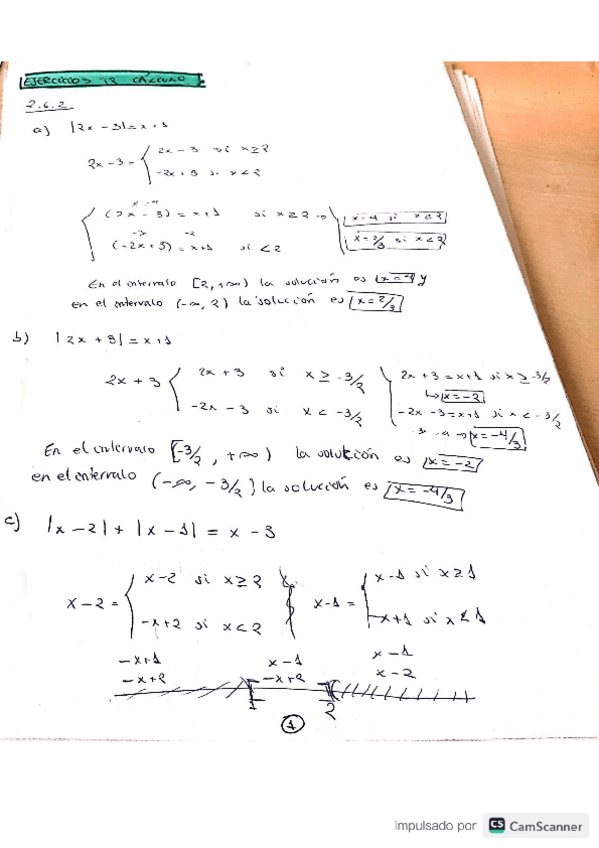 EJERCICIOS T3 CÁLCULO
2.6.2
a) |2x - 3| = x + 1
2x - 3 = { 2x - 3 si x ≥ 2
-2x + 3 si x < 2
(2x - 3) = x + 1 si x ≥ 2 → x = 4 si x ≥ 2
(-2x + 3) = x + 1 si < 2 x = 2/3 si x < 2
En el intervalo [2, +∞) la solución es x = 4 y
en el intervalo (-∞, 2) la solución es x = 2/3
b) |2x + 3| = x + 1
2x + 3 { 2x + 3 si x ≥ -3/2 { 2x + 3 = x + 1 si x ≥ -3/2
↳ x = -2
-2x - 3 si x < -3/2 -2x - 3 = x + 1 si x < -3/2
→ x = -4/3
En el intervalo [-3/2, +∞) la solución es x = -2
en el intervalo (-∞, -3/2) la solución es x = -4/3
c) |x - 2| + |x - 1| = x - 3
x - 2 = { x - 2 si x ≥ 2 x - 1 = { x - 1 si x ≥ 1
-x + 2 si x < 2 -x + 1 si x < 1
-x + 1 x - 1 x - 1
-x + 2 -x + 2 x - 2
1 2
1
impulsado por CS CamScanner